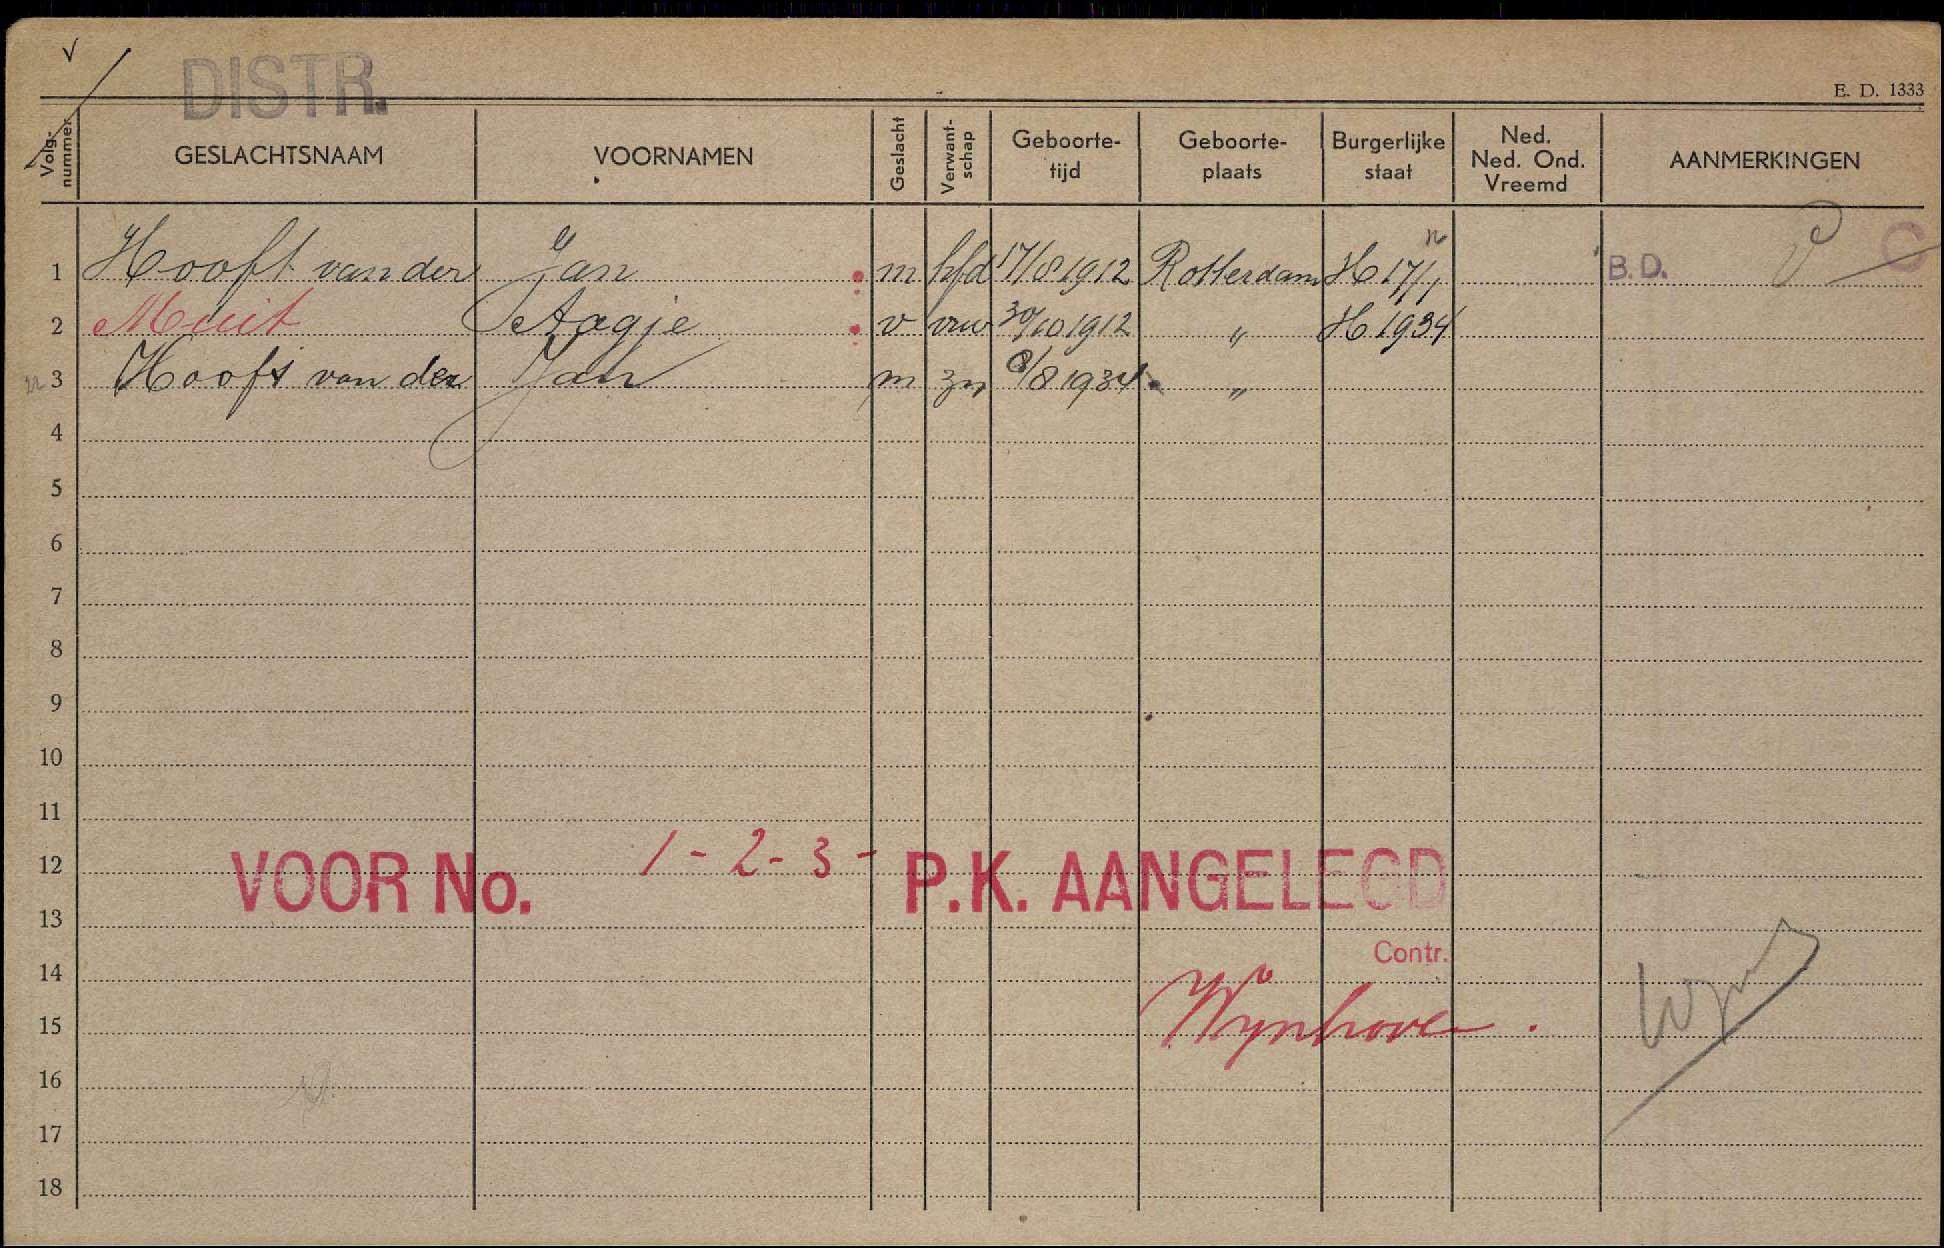 DISTR.
E. D. 1333
Volg-nummer GESLACHTSNAAM VOORNAMEN Geslacht Verwant-schap Geboorte-tijd Geboorte-plaats Burgerlijke staat Ned. Ned. Ond. Vreemd AANMERKINGEN
1 Hooft van der Jan m hfd 17/8 1912 Rotterdam H 17/1 B.D. C
2 Muit Aagje v vrw 30/10 1912 " H 1934
3 Hooft van der Jan m zn 8/8 1934 "
4
5
6
7
8
9
10
11
12 VOOR No. 1 - 2 - 3 - P.K. AANGELEGD
13
14 Contr.
15 Wynhoven
16
17
18